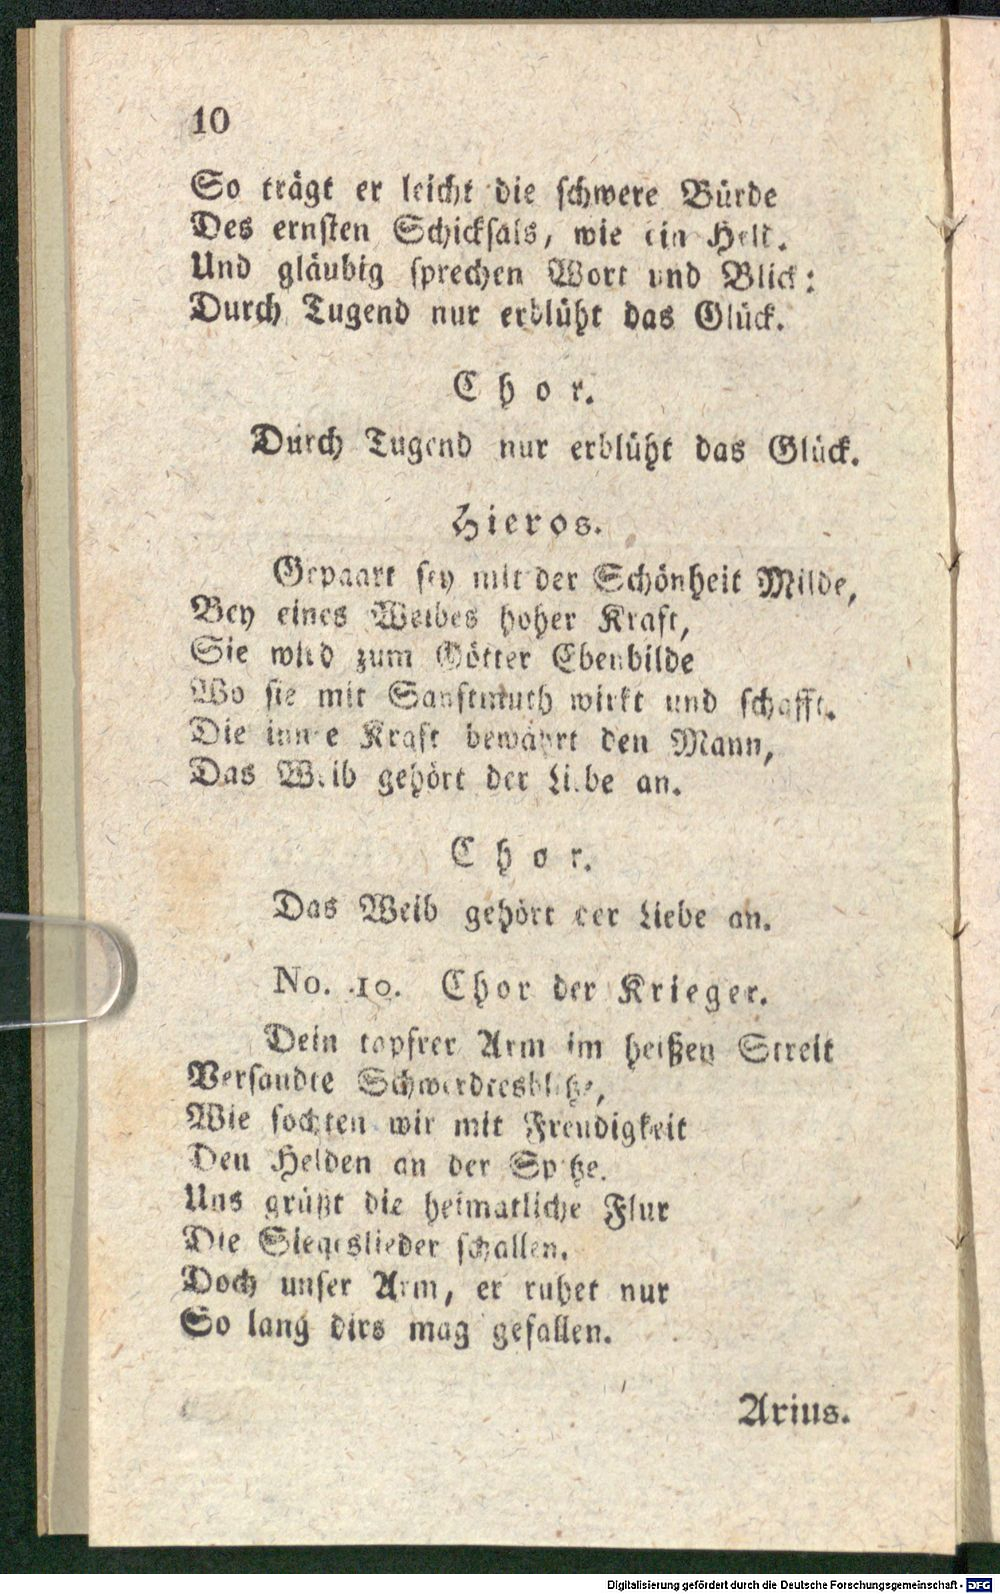 10
So trägt er leicht die schwere Bürde
Des ernsten Schicksals, wie ein Held.
Und gläubig sprechen Wort und Blick:
Durch Tugend nur erblüht das Glück.
Chor.
Durch Tugend nur erblüht das Glück.
Hieros.
Gepaart sey mit der Schönheit Milde,
Bey eines Weibes hoher Kraft,
Sie wird zum Götter Ebenbilde
Wo sie mit Sanftmuth wirkt und schafft.
Die innre Kraft bewährt den Mann,
Das Weib gehört der Liebe an.
Chor.
Das Weib gehört der Liebe an.
No. 10. Chor der Krieger.
Dein tapfrer Arm im heißen Streit
Versandte Schwerdtesblitze,
Wie fochten wir mit Freudigkeit
Den Helden an der Spitze.
Uns grüßt die heimatliche Flur
Die Siegeslieder schallen.
Doch unser Arm, er ruhet nur
So lang dirs mag gefallen.
Arius.
Digitalisierung gefördert durch die Deutsche Forschungsgemeinschaft - DFG